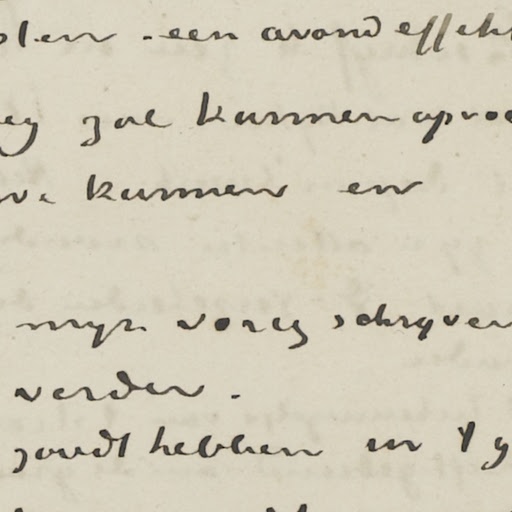 een avondeffekt
zal kunnen oproe
kunnen en
mijn vorig schrijven
verder.
zoudt hebben in 't g